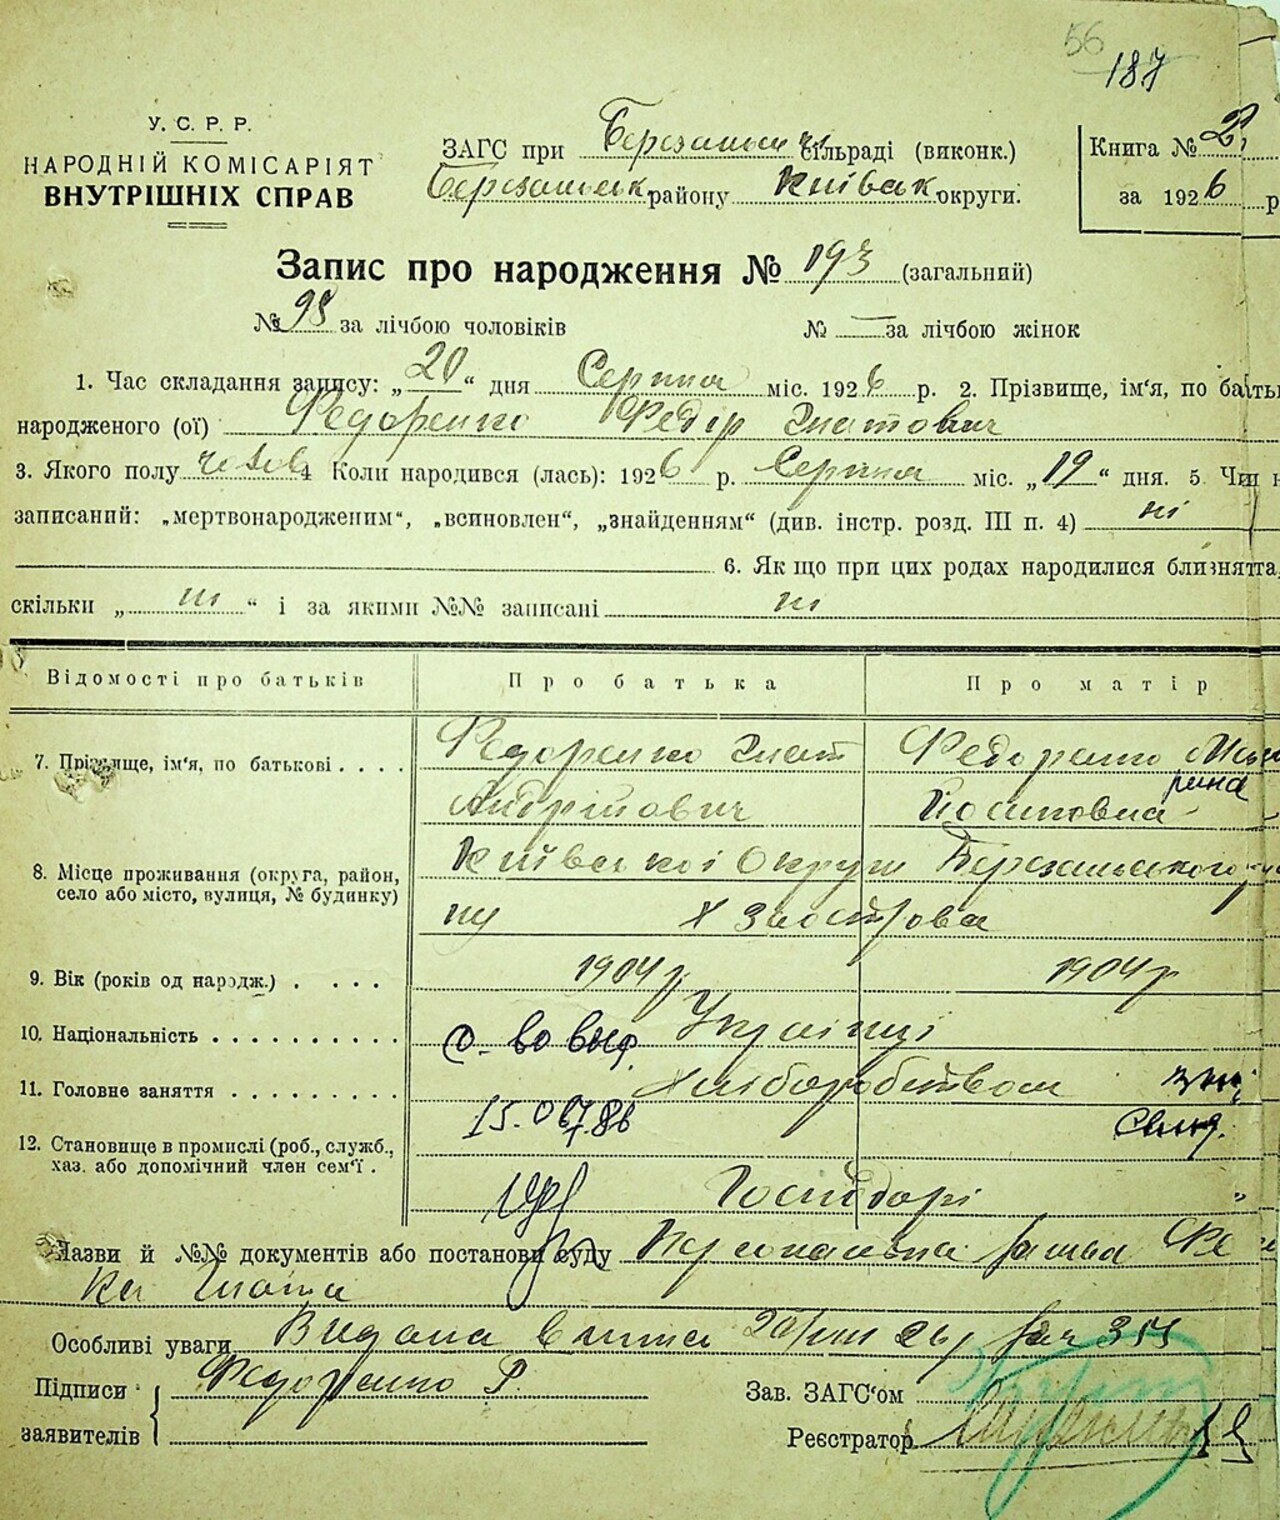 56
187
У. С. Р. Р.
НАРОДНІЙ КОМІСАРІЯТ
ВНУТРІШНІХ СПРАВ
ЗАГС при Березанськ сільраді (виконк.)
Березанськ району Київськ округи.
Книга № 2
за 1926 р
Запис про народження № 193 (загальний)
№ 98 за лічбою чоловіків № — за лічбою жінок
1. Час складання запису: „20“ дня Серпня міс. 1926 р. 2. Прізвище, ім‘я, по батьк
народженого (ої) Федоренко Федір Гнатович
3. Якого полу чолов 4 Коли народився (лась): 1926 р. Серпня міс. „19“ дня. 5 Чи н
записаний: „мертвонародженим“, „всиновлен“, „знайденням“ (див. інстр. розд. III п. 4) ні
6. Як що при цих родах народилися близнята,
скільки „ ні “ і за якими №№ записані ні
Відомості про батьків Про батька Про матір
7. Прізвище, ім‘я, по батькові . . . . Федоренко Гнат Федоренко
Андрійович рина Йосиповна
8. Місце проживання (округа, район, село або місто, вулиця, № будинку) Київської Округи Березанського
ну Х Заострова
9. Вік (років од народж.) . . . . 1904 р 1904 р
10. Національність . . . . . . . . . . Українці
11. Головне заняття . . . . . . . . . Хліборобством
15.07.86
12. Становище в промислі (роб., служб., хаз. або допомічний член сем‘ї . Господарі "
Назви й №№ документів або постанови суду Персональна заява Фе
ка Гната
Особливі уваги Видана виписка 20/VIII 26 р за № 355
Підписи заявителів Федоренко Г.
Зав. ЗАГС‘ом
Реєстратор